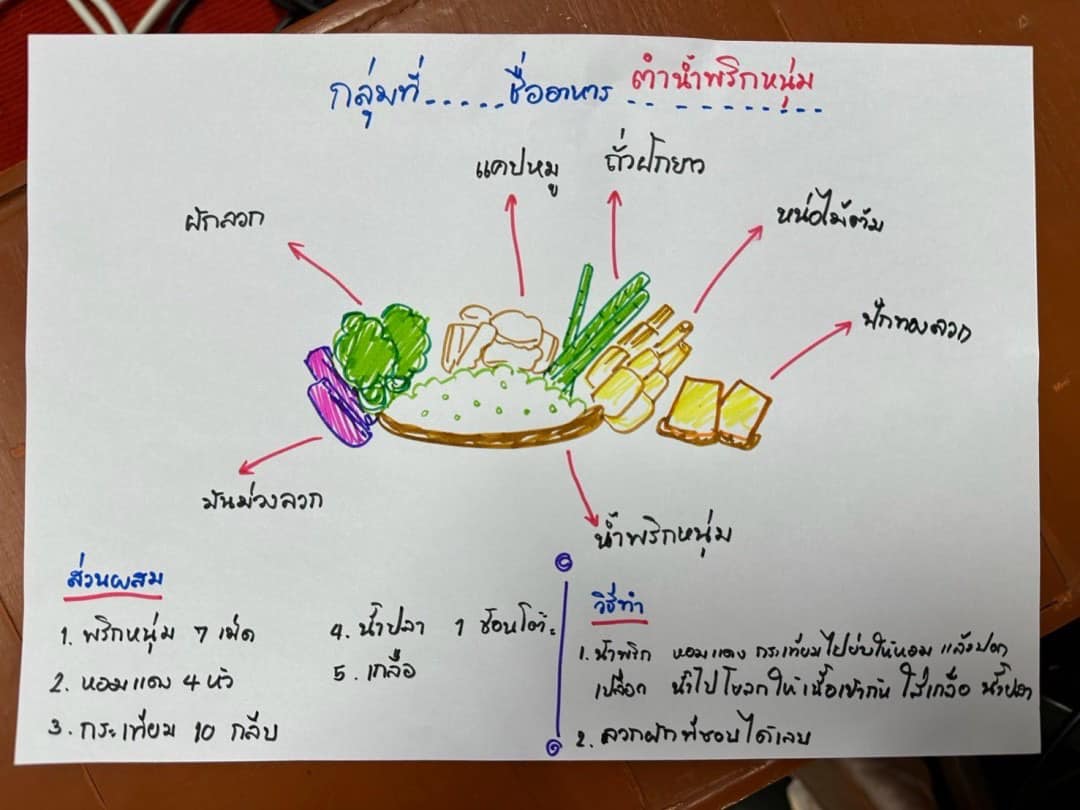 กลุ่มที่.....ชื่ออาหาร ตำน้ำพริกหนุ่ม
แคปหมู
ถั่วฝักยาว
ผักลวก
หน่อไม้ต้ม
ฟักทองลวก
มันม่วงลวก
น้ำพริกหนุ่ม
ส่วนผสม
1. พริกหนุ่ม 7 เม็ด
2. หอมแดง 4 หัว
3. กระเทียม 10 กลีบ
4. น้ำปลา 1 ช้อนโต๊ะ
5. เกลือ
วิธีทำ
1. น้ำพริก หอมแดง กระเทียมไปย่างให้หอม แล้วปอก
เปลือก นำไปโขลกให้เนื้อเข้ากัน ใส่เกลือ น้ำปลา
2. ลวกผักที่ชอบได้เลย